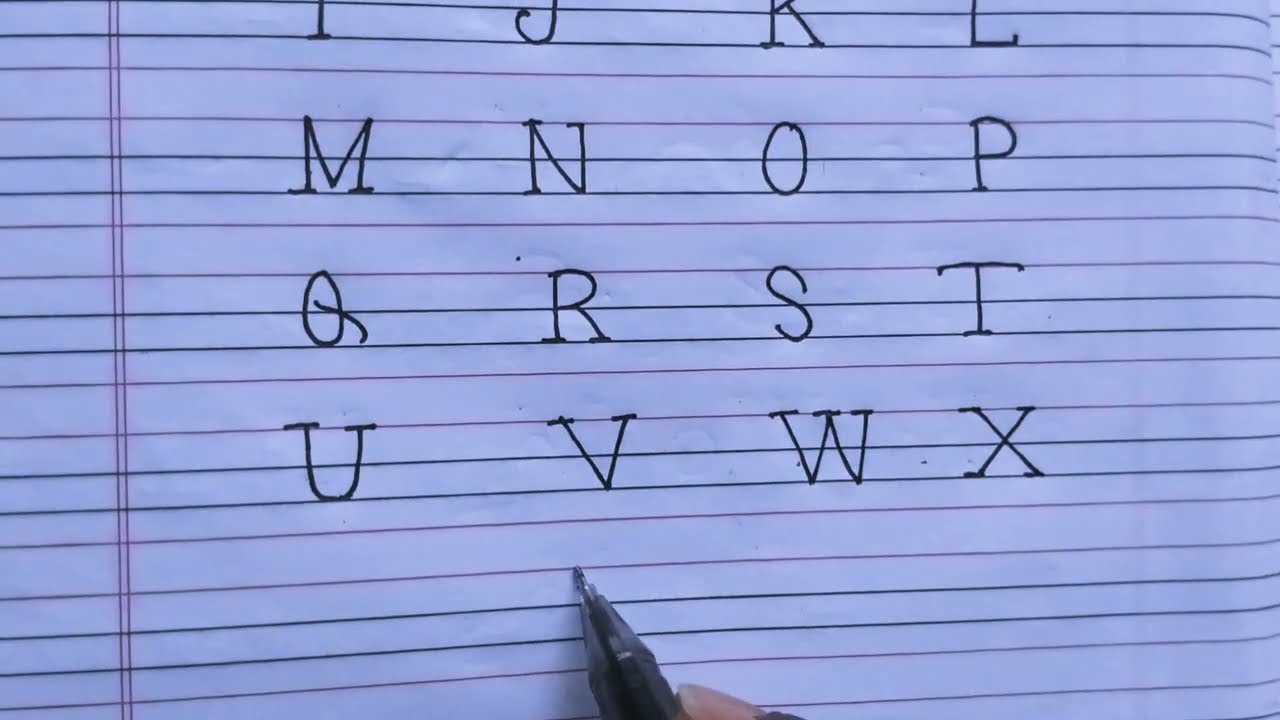 I J K L
M N O P
Q R S T
U V W X